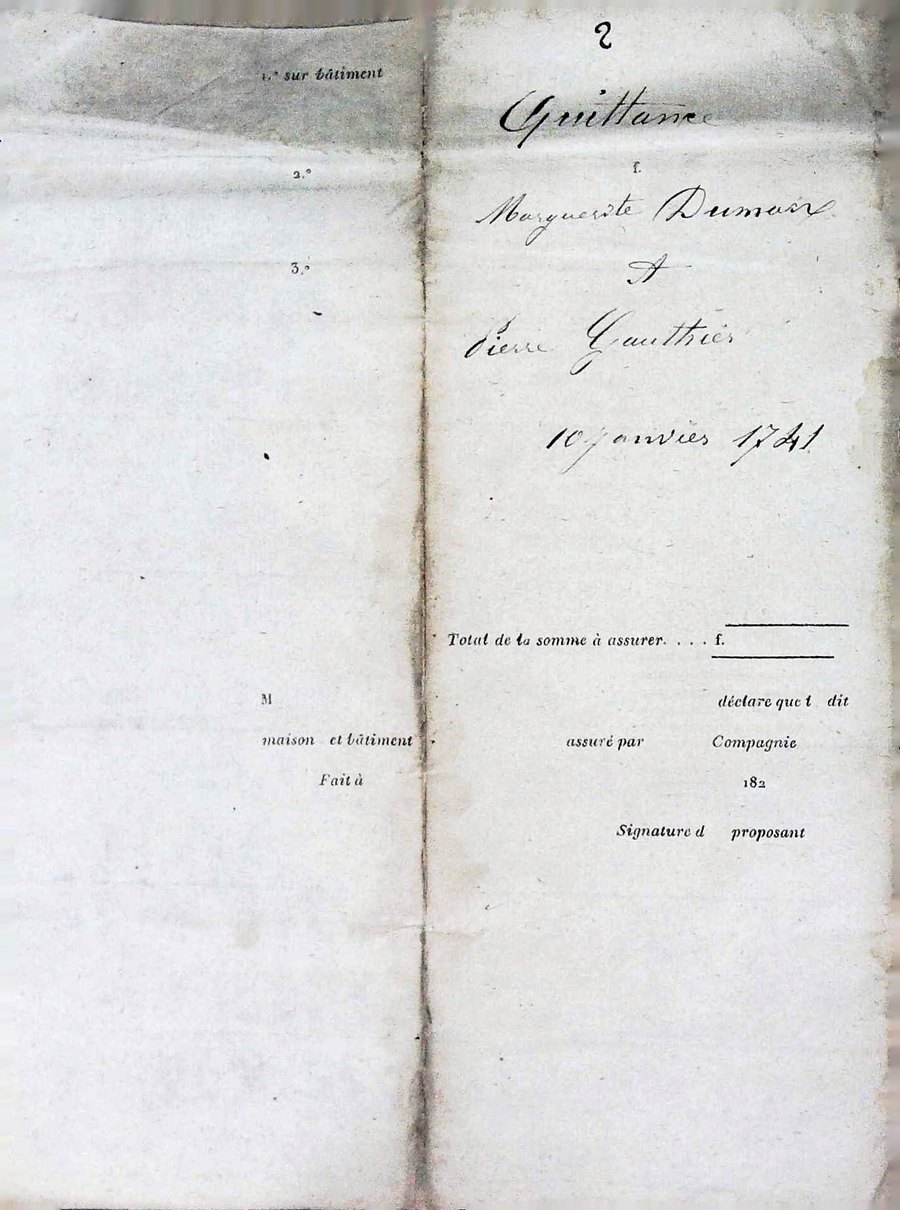 2
1.º sur bâtiment
Quittance
2.º
f.
Marguerite Dumoix
3.º
A
Pierre Gauthier
10 janvier 1741
Total de la somme à assurer. . . . f.
M déclare que l dit
maison et bâtiment assuré par Compagnie
Fait à 182
Signature d proposant